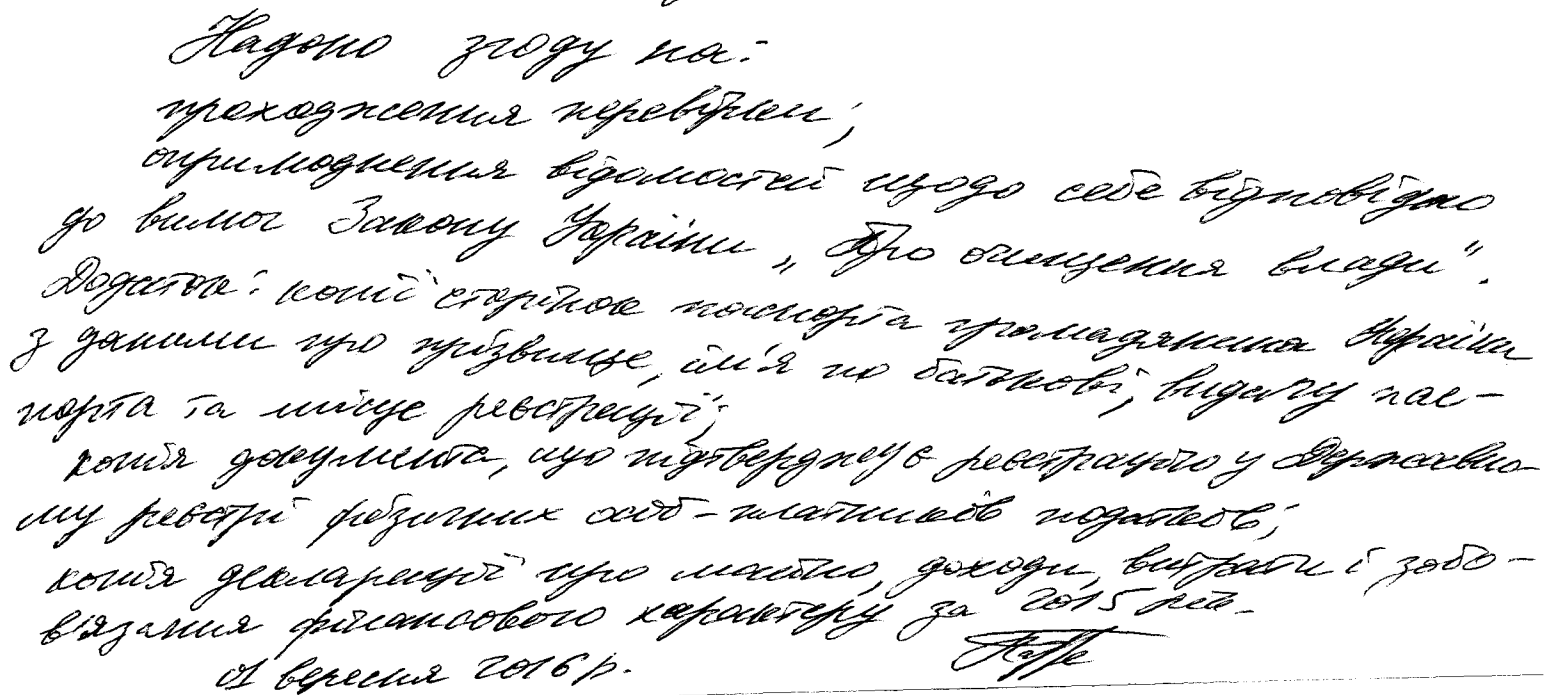 Надаю згоду на:
проходження перевірки;
оприлюднення відомостей щодо себе відповідно
до вимог Закону України „Про очищення влади".
Додаток: копії сторінок паспорта громадянина України
з даними про прізвище, ім'я по батькові, видачу пас-
порта та місце реєстрації;
копія документа, що підтверджує реєстрацію у Державно-
му реєстрі фізичних осіб-платників податків;
копія декларації про майно, доходи, витрати і зобо-
в'язання фінансового характеру за 2015 рік.
01 вересня 2016 р.